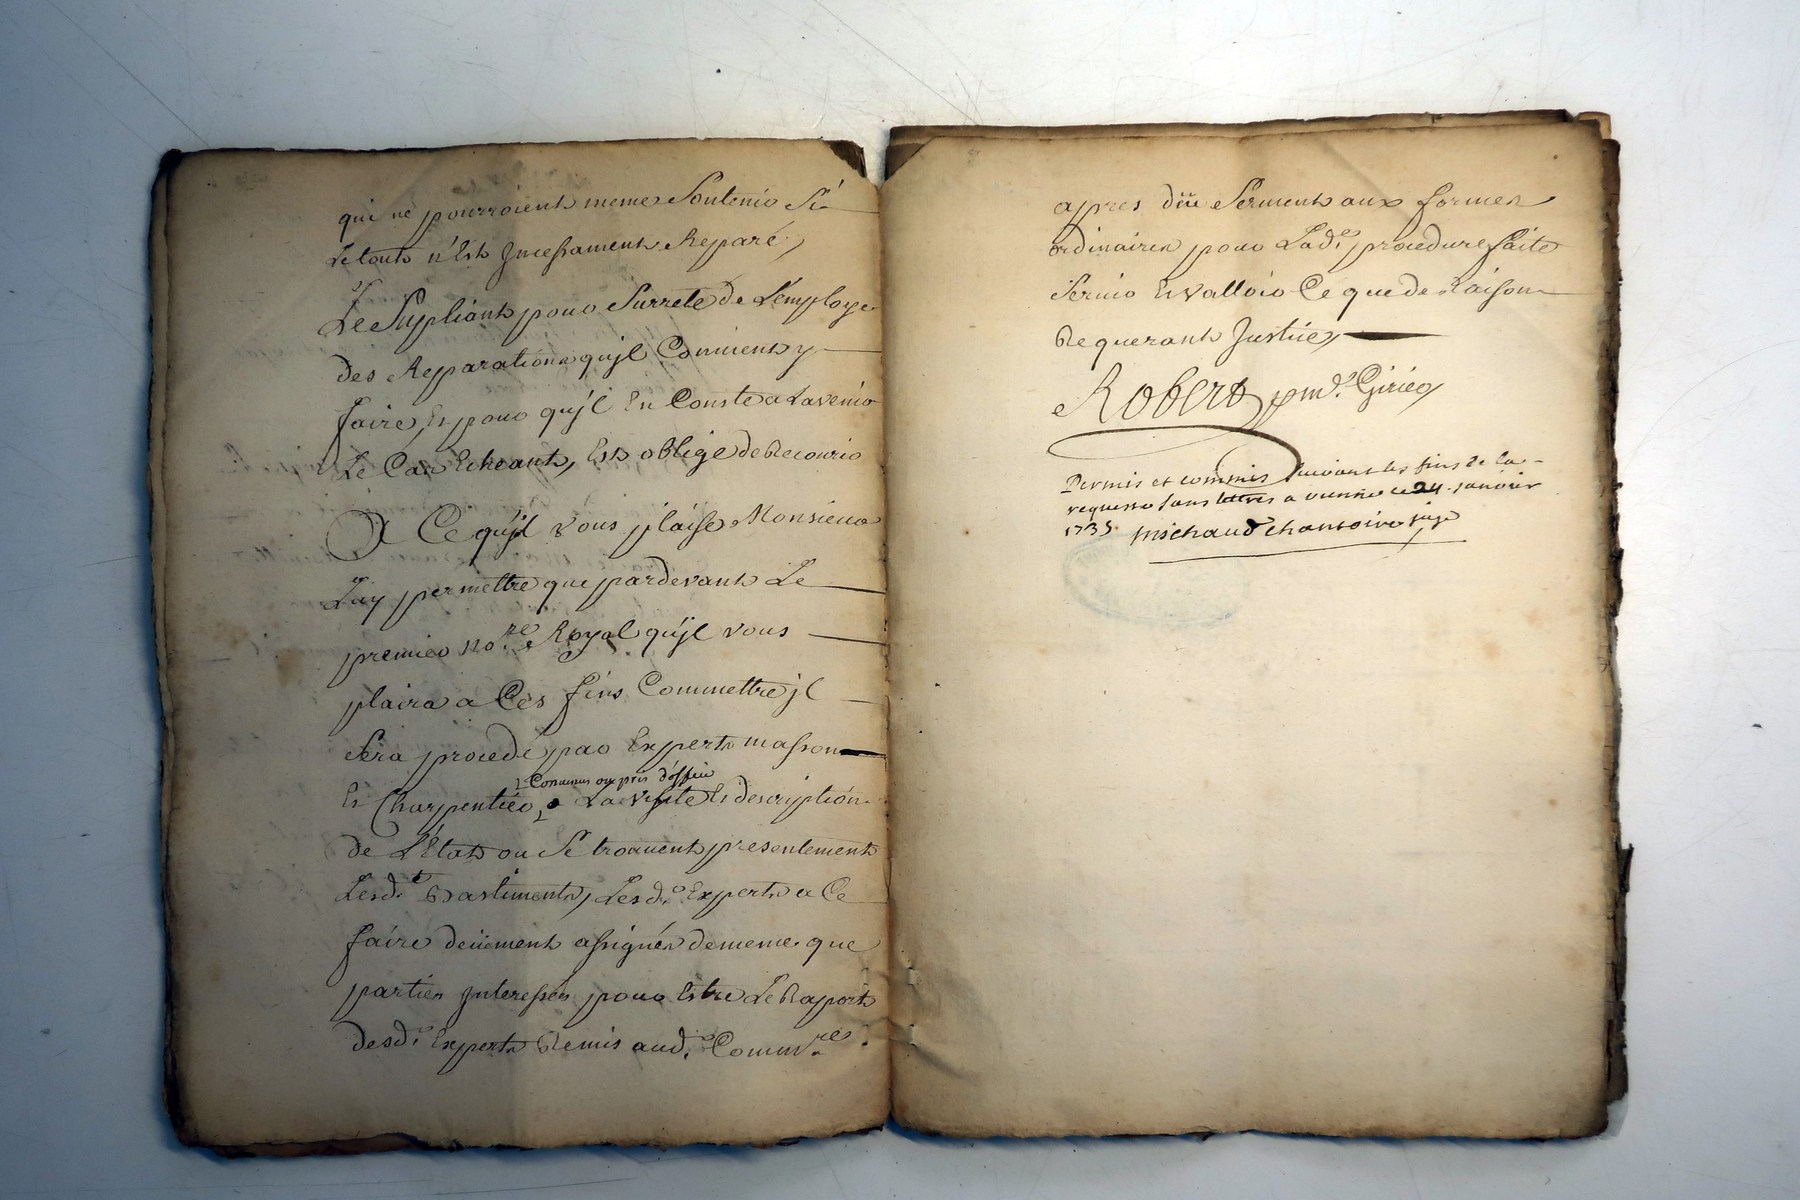 qui ne pourroient meme Soutenir Si
Le tout n'Est Incessament Reparé,
Le Supliant pour Surrete de L'employ
des Reparations qu'jl Convient y
faire, Et pour qu'jl En Conste a Lavenir
Le Cas Echeant, Est obligé de Recourir
A Ce qu'jl vous plaise Monsieur
Luy permettre que pardevant Le
premier no.re Royal qu'jl vous
plaira a Ces fins Commettre jl
Sera procedé par Experts masson
Et Charpentier, a La visite Et description
Convenus ou pris d'office
de L'Etat ou Se trouvent presentement
Lesd.t Bastiments, Lesd.s Experts a Ce
faire deüement assignés de meme que
parties Interessés pour Estre Le Raport
desd.s Experts Remis aud.s Comm.re
apres düe Serment aux formes
ordinaires pour Lad.e procedure faite
Servir Et Valloir Ce que de Raison
Requerant Justice,
Robert pmd.r Girieq
Permis et commis suivant les fins de la
requeste sans lettres a vienne ce 24 janvier
1735 Michaud chantoire juge